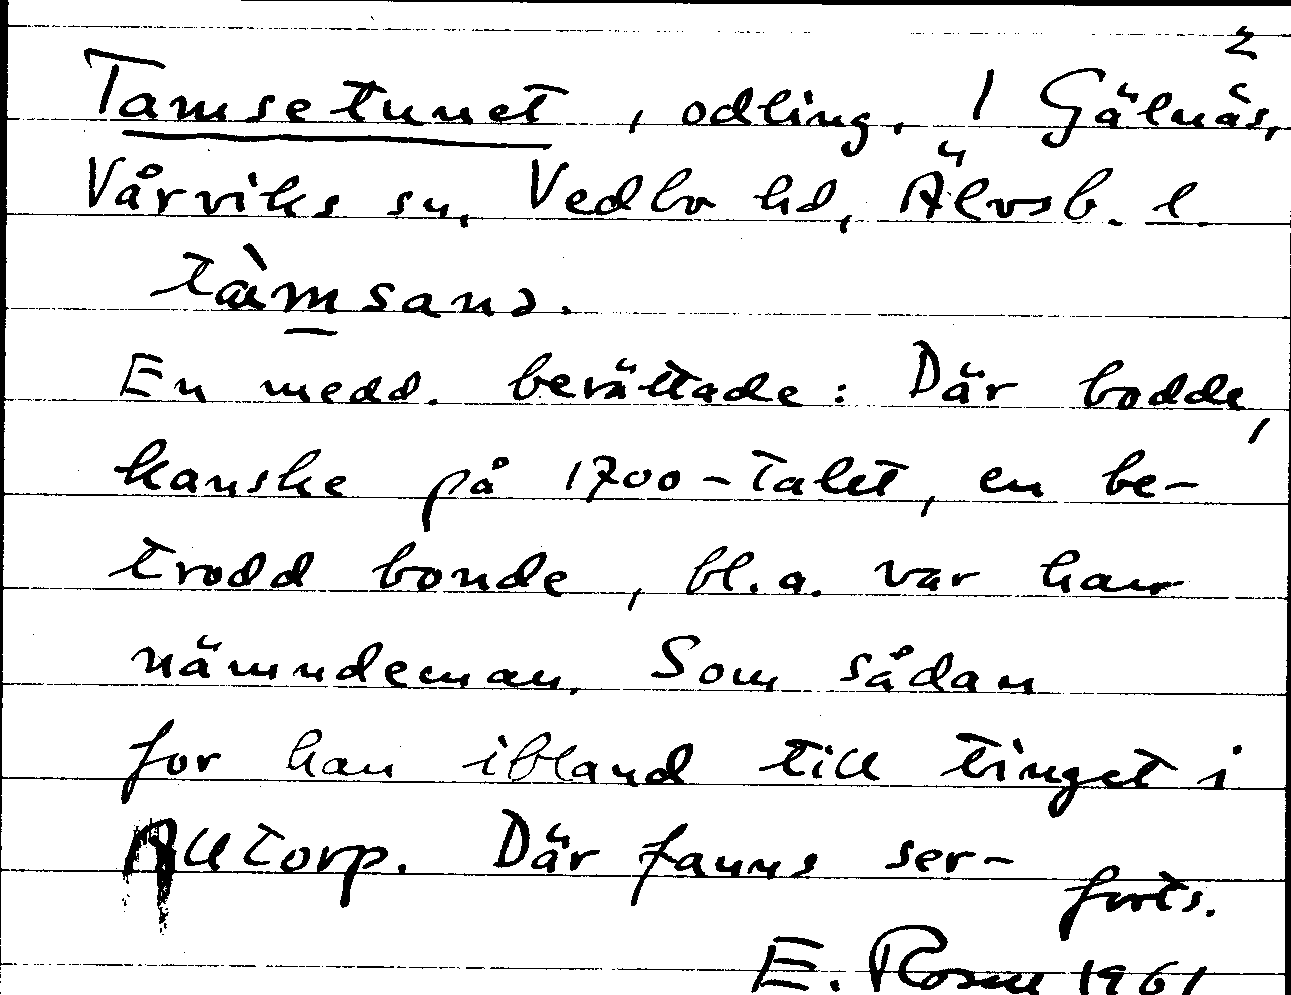 2
Tamsetunet, odling. I Gälnäs,
Vårviks sn, Vedbo hd, Älvsb. l.
tàmsanɔ.
En medd. berättade: Där bodde,
kanske på 1700-talet, en be-
trodd bonde, bl.a. var han
nämndeman. Som sådan
for han ibland till tinget i
Alltorp. Där fanns ser-
forts.
E. Rosell 1961